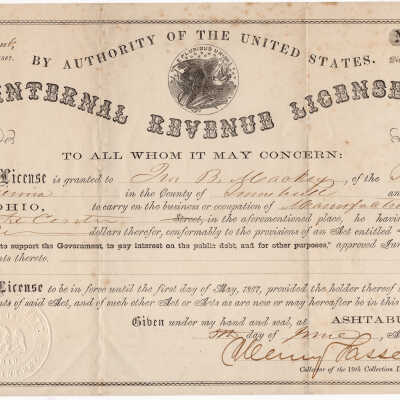 BY AUTHORITY OF THE UNITED STATES.
E PLURIBUS UNUM
INTERNAL REVENUE LICENSE
TO ALL WHOM IT MAY CONCERN:
License is granted to Jno B. Mackey of the
in the County of Trumbull
OHIO, to carry on the business or occupation of
the Centre Street, in the aforementioned place, he having
dollars therefor, conformably to the provisions of an Act entitled
to support the Government, to pay interest on the public debt, and for other purposes," approved
nts thereto.
License to be in force until the first day of May, 1867, provided the holder thereof
nts of said Act, and of such other Act or Acts as are now or may hereafter be in this
Given under my hand and seal, at ASHTABU
day of June
Henry Fasse
Collector of the 19th Collection